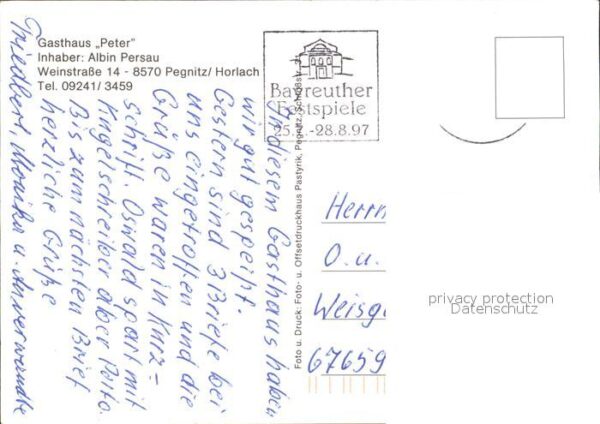 Gasthaus „Peter"
Inhaber: Albin Persau
Weinstraße 14 - 8570 Pegnitz/ Horlach
Tel. 09241/ 3459
In diesem Gasthaus haben
wir gut gespeist.
Gestern sind 3 Briefe bei
uns eingetroffen und die
Grüße waren in Kurz=
schrift. Oswald spart mit
Kugelschreiber aber Porto.
Bis zum nächsten Brief
herzliche Grüße
Friedbert, Monika u. Anverwandte
Foto u. Druck: Foto- u. Offsetdruckhaus Pastyrik, Pegnitz, Schloßstr.
Bayreuther
Festspiele
25. -28.8.97
Herrn
O. u.
Weisge
67659
privacy protection
Datenschutz